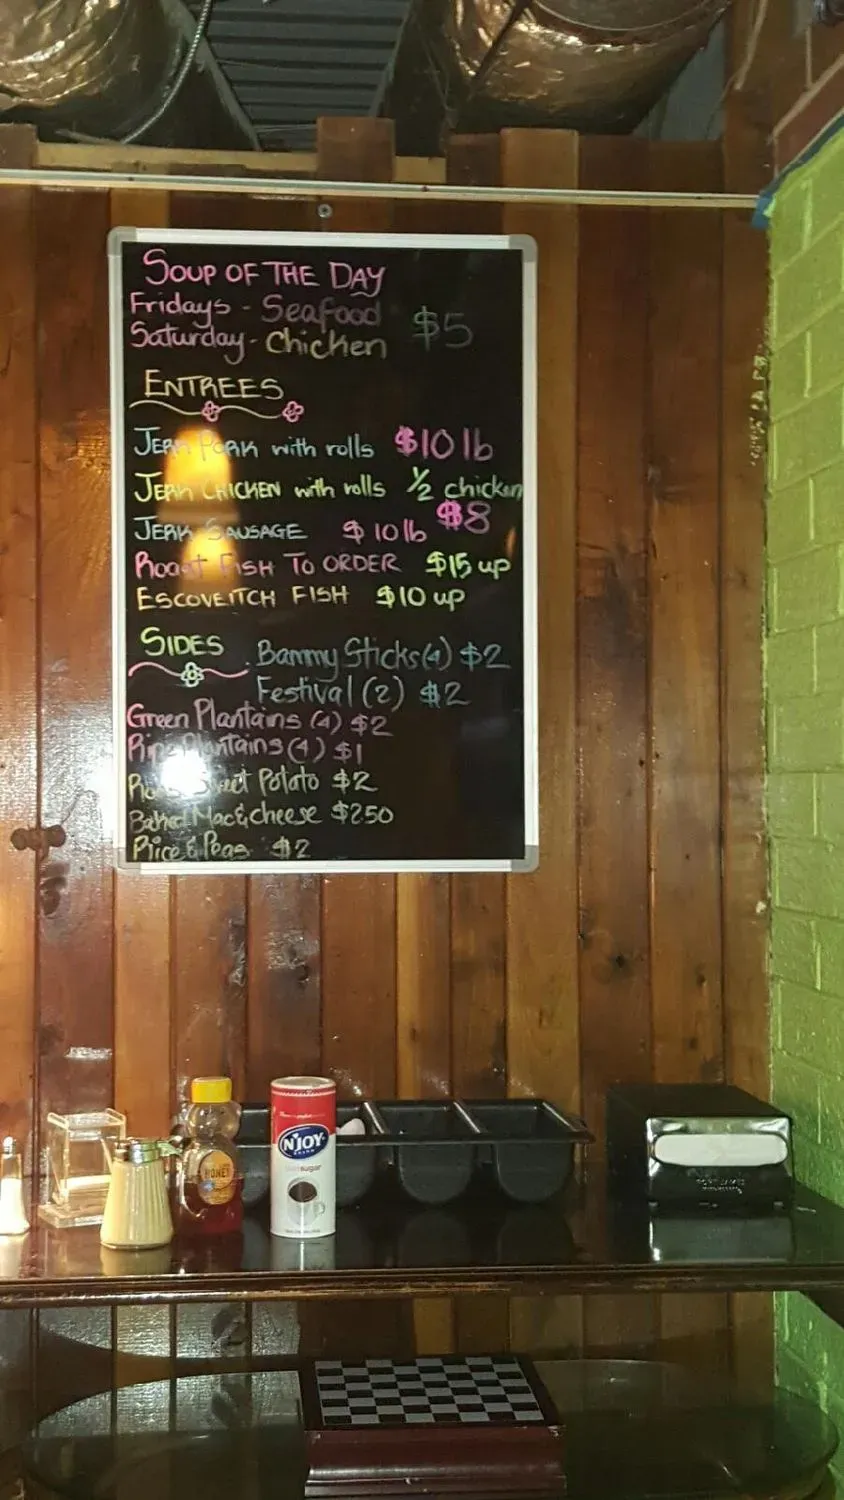 SOUP OF THE DAY
Fridays - Seafood
Saturday - Chicken $5
ENTREES
JERK PORK with rolls $10 lb
JERK CHICKEN with rolls 1/2 chicken
$8
JERK SAUSAGE $10 lb
Roast FISH To ORDER $15 up
ESCOVEITCH FISH $10 up
SIDES
Bammy Sticks (4) $2
Festival (2) $2
Green Plantains (4) $2
Ripe Plantains (4) $1
Sweet Potato $2
Baked Mac & cheese $250
Rice & Peas $2
N'JOY
sugar
HONEY